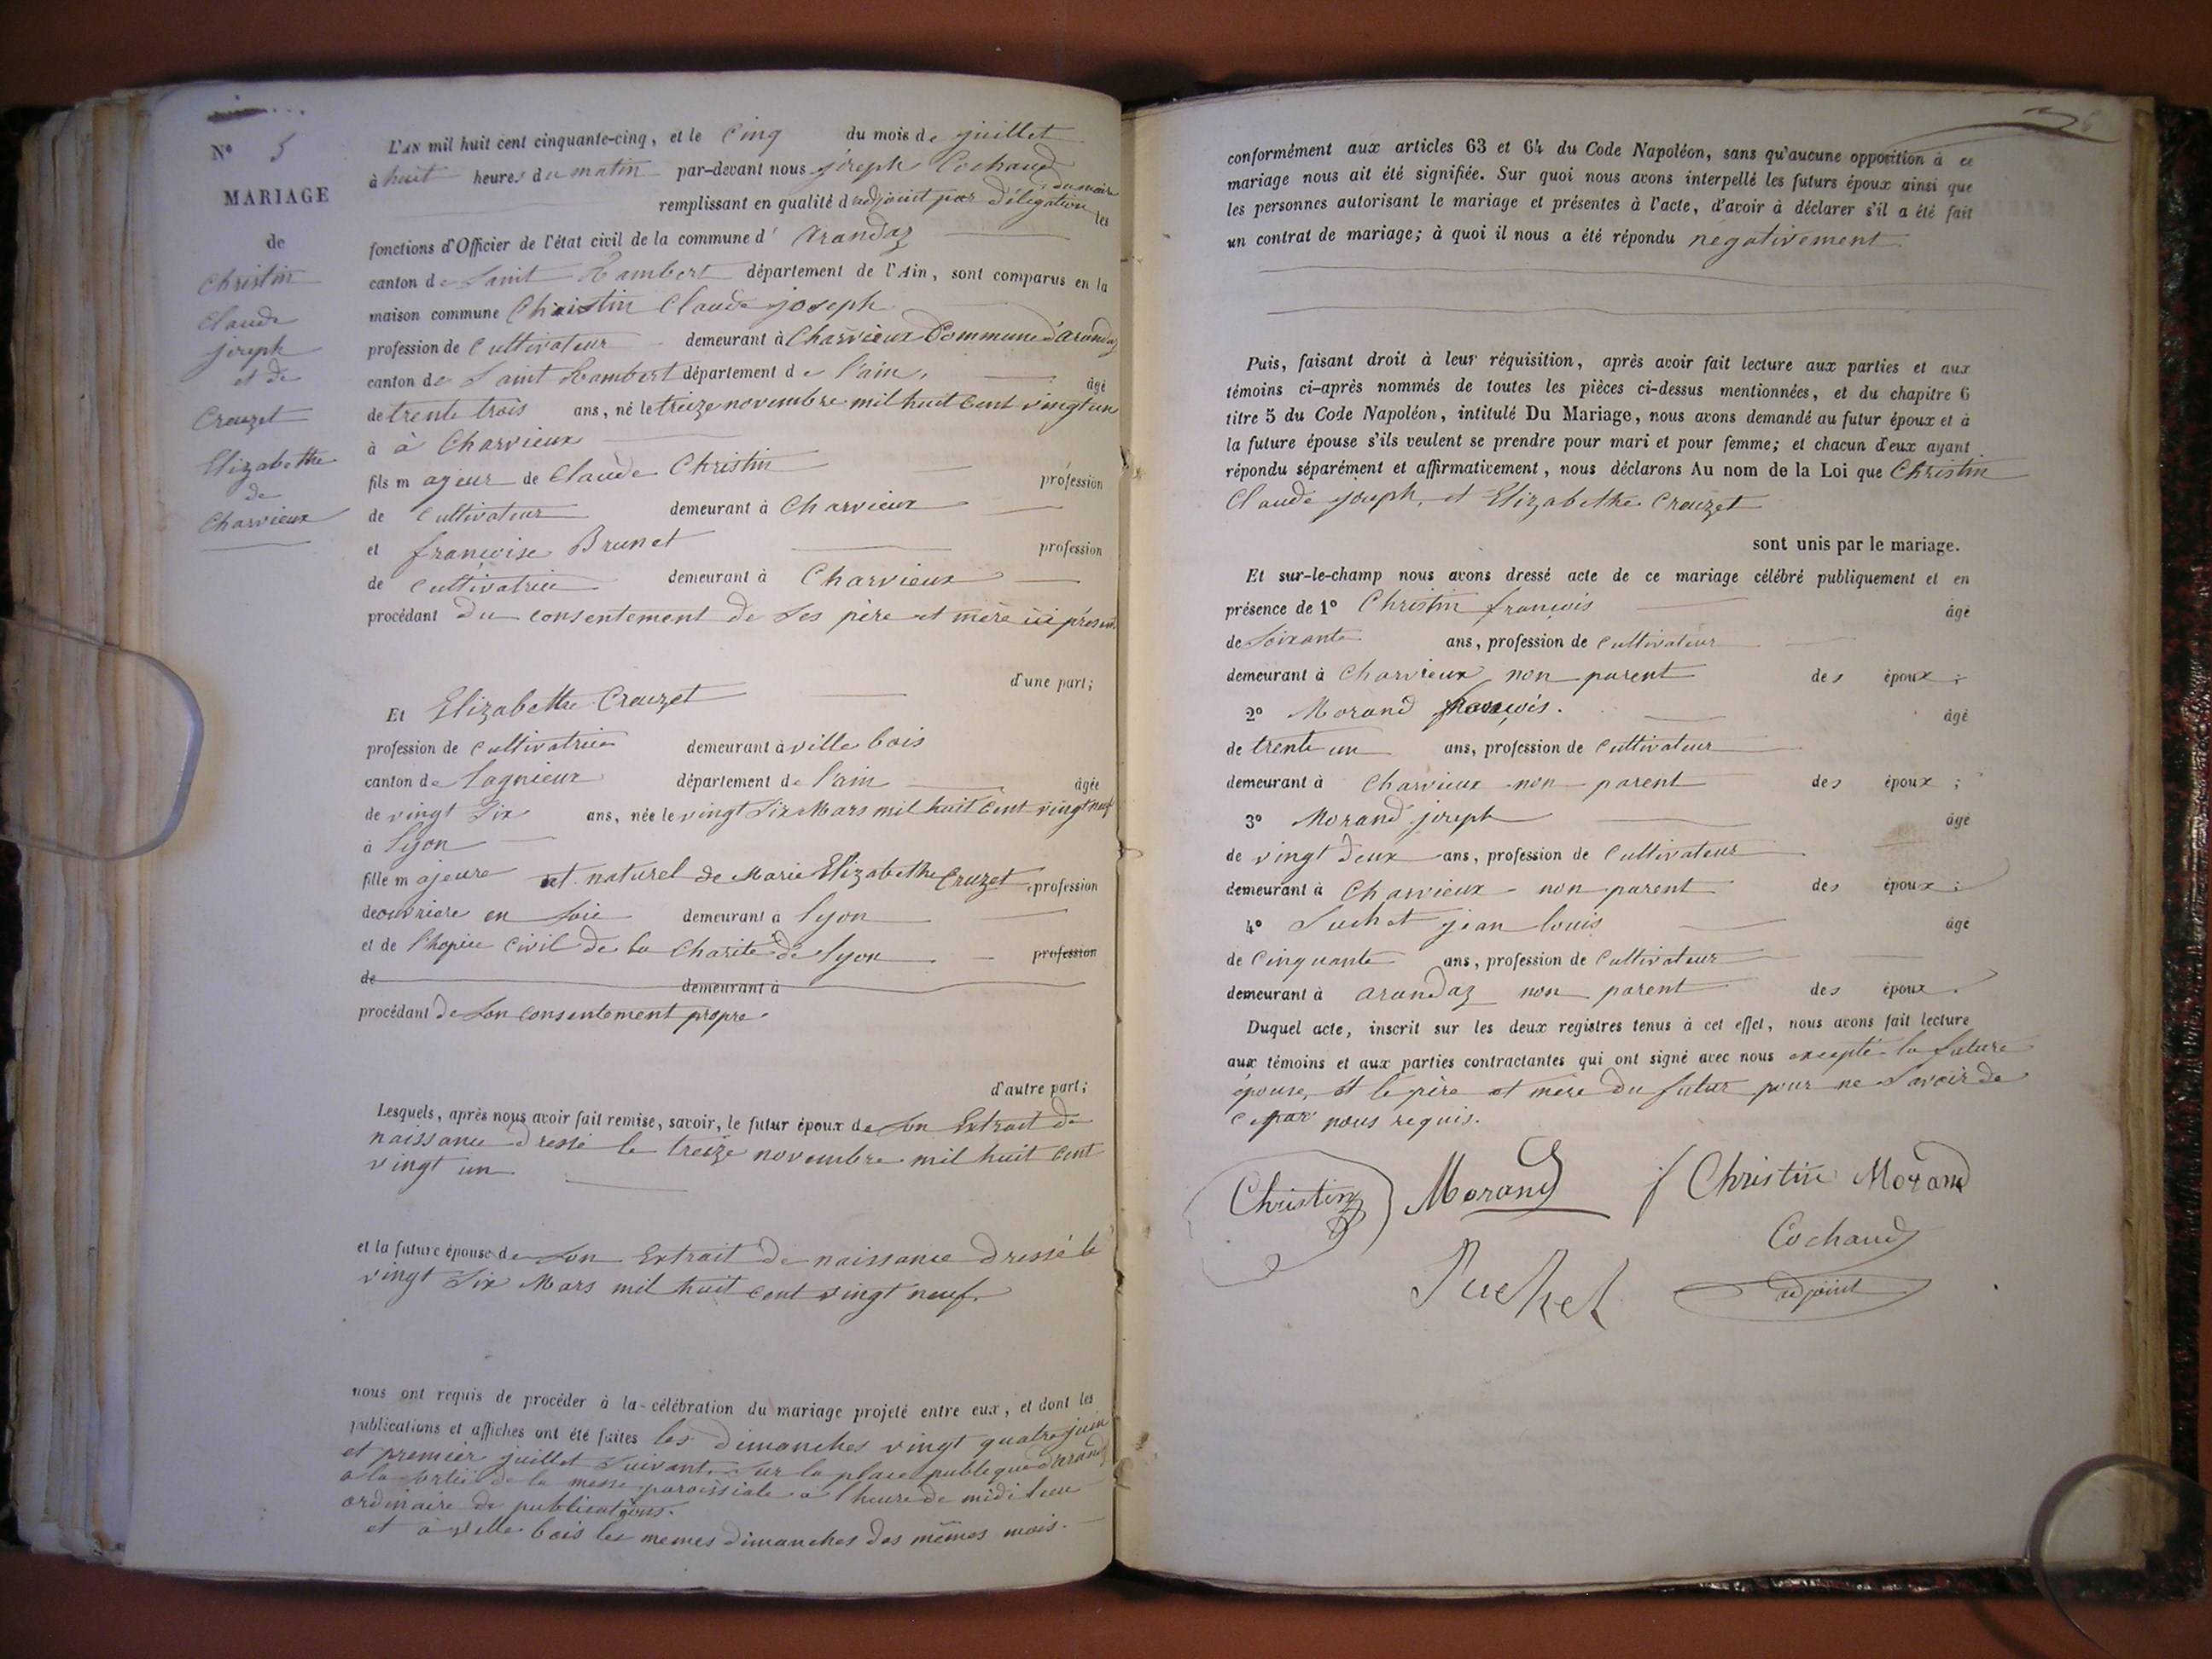 N° 5
MARIAGE
de
Christin
Claude
joseph
et de
Creuzet
Elizabethe
de
Charvieux
L'AN mil huit cent cinquante-cinq, et le Cinq du mois de juillet
à huit heures du matin par-devant nous joseph Cochaud
remplissant en qualité d'adjoint par délégation du maire les
fonctions d'Officier de l'état civil de la commune d' arandaz
canton de Saint Rambert département de l'Ain, sont comparus en la
maison commune Christin Claude joseph
profession de Cultivateur demeurant à Charvieux Commune d'arandaz
canton de Saint Rambert département de l'ain, âgé
de trente trois ans, né le treize novembre mil huit Cent vingt un
à à Charvieux
fils majeur de Claude Christin profession
de Cultivateur demeurant à Charvieux
et françoise Brunet profession
de Cultivatrice demeurant à Charvieux
procédant du consentement de ses père et mère ici présent
d'une part;
Et Elizabethe Creuzet
profession de Cultivatrice demeurant à ville bois
canton de Lagnieux département de l'ain âgée
de vingt Six ans, née le vingt Six Mars mil huit Cent vingt neuf
à Lyon
fille majeure et naturel de Marie Elizabethe Cruzet profession
de ouvriere en soie demeurant à Lyon
et de l'hopice Civil de la Charité de Lyon profession
de demeurant à
procédant de son consentement propre.
d'autre part;
Lesquels, après nous avoir fait remise, savoir, le futur époux de son Extrait de
naissance dressé le treize novembre mil huit Cent
vingt un
et la future épouse de son Extrait de naissance dressé le
vingt Six Mars mil huit Cent vingt neuf.
nous ont requis de procéder à la célébration du mariage projeté entre eux, et dont les
publications et affiches ont été faites les dimanches vingt quatre juin
et premier juillet suivant sur la place publique d'arandaz
a la sortie de la messe paroissiale a l'heure de midi lieu
ordinaire de publications.
et a ville bois les memes dimanches des mêmes mois.
conformément aux articles 63 et 64 du Code Napoléon, sans qu'aucune opposition à ce
mariage nous ait été signifiée. Sur quoi nous avons interpellé les futurs époux ainsi que
les personnes autorisant le mariage et présentes à l'acte, d'avoir à déclarer s'il a été fait
un contrat de mariage; à quoi il nous a été répondu negativement
Puis, faisant droit à leur réquisition, après avoir fait lecture aux parties et aux
témoins ci-après nommés de toutes les pièces ci-dessus mentionnées, et du chapitre 6
titre 5 du Code Napoléon, intitulé Du Mariage, nous avons demandé au futur époux et à
la future épouse s'ils veulent se prendre pour mari et pour femme; et chacun d'eux ayant
répondu séparément et affirmativement, nous déclarons Au nom de la Loi que Christin
Claude joseph, et Elizabethe Creuzet
sont unis par le mariage.
Et sur-le-champ nous avons dressé acte de ce mariage célébré publiquement et en
présence de 1° Christin françois âgé
de Soixante ans, profession de Cultivateur
demeurant à Charvieux non parent des époux;
2° Morand françois. âgé
de trente un ans, profession de Cultivateur
demeurant à Charvieux non parent des époux;
3° Morand joseph âgé
de vingt deux ans, profession de Cultivateur
demeurant à Charvieux non parent des époux;
4° Suchet jean louis âgé
de Cinquante ans, profession de Cultivateur
demeurant à arandaz non parent des époux.
Duquel acte, inscrit sur les deux registres tenus à cet effet, nous avons fait lecture
aux témoins et aux parties contractantes qui ont signé avec nous excepté la future
épouse, et le père et mère du futur pour ne savoir de
ce par nous requis.
Christin Morand f Christin Morand
Cochaud
Suchet adjoint